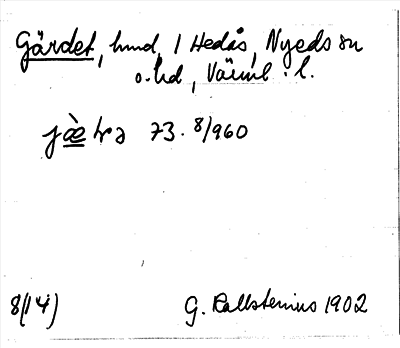 Gärdet, hmd, 1 Hedås, Nyeds sn
o. hd, Värml. l.
73. 8/960
8(14)
G. Kallstenius 1902